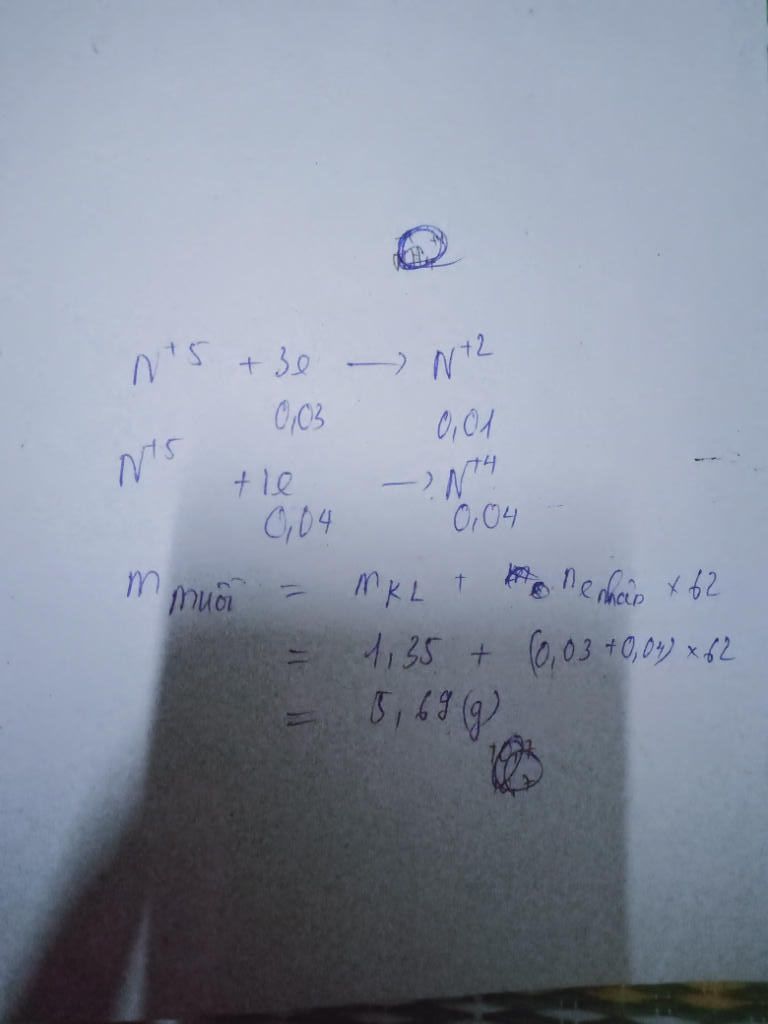 N⁺⁵ + 3e → N⁺²
0,03 0,01
N⁺⁵ + 1e → N⁺⁴
0,04 0,04
m muối = m KL + n e nhận × 62
= 1,35 + (0,03 + 0,04) × 62
= 5,69 (g)